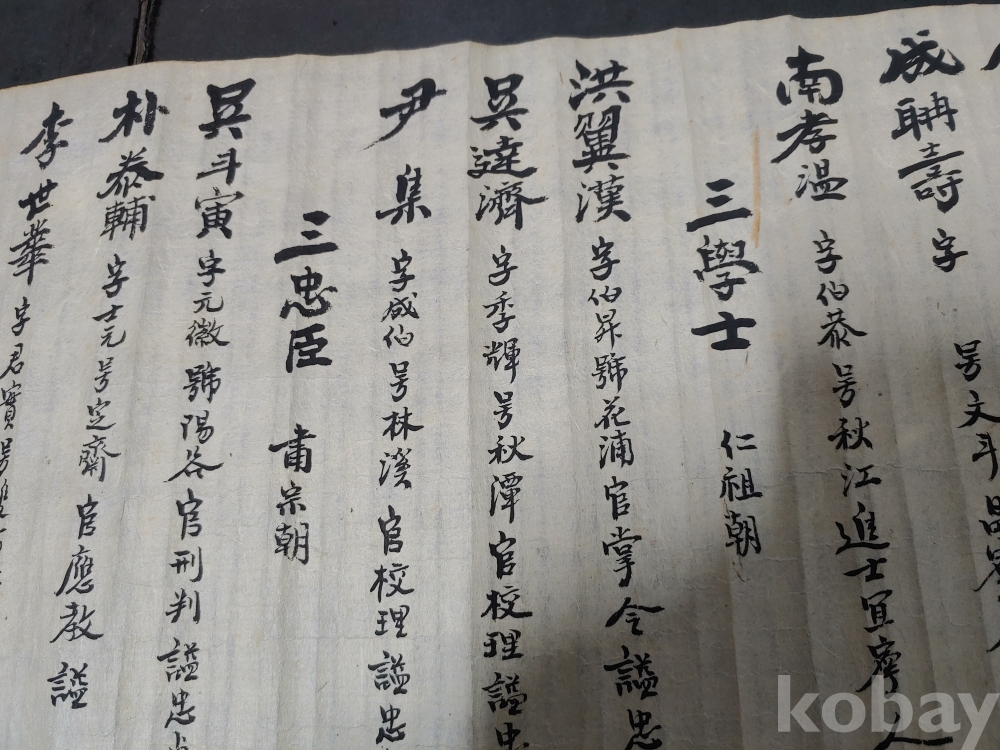 成聃壽 字 号文斗
南孝溫 字伯恭号秋江進士宜寧人
三學士 仁祖朝
洪翼漢 字伯昇號花浦官掌令諡忠
吳達濟 字季輝号秋潭官校理諡忠
尹集 字成伯号林溪官校理諡忠
三忠臣 肅宗朝
吳斗寅 字元徵號陽谷官刑判諡忠
朴泰輔 字士元号定齋官應教諡
李世華 字君實号
kobay